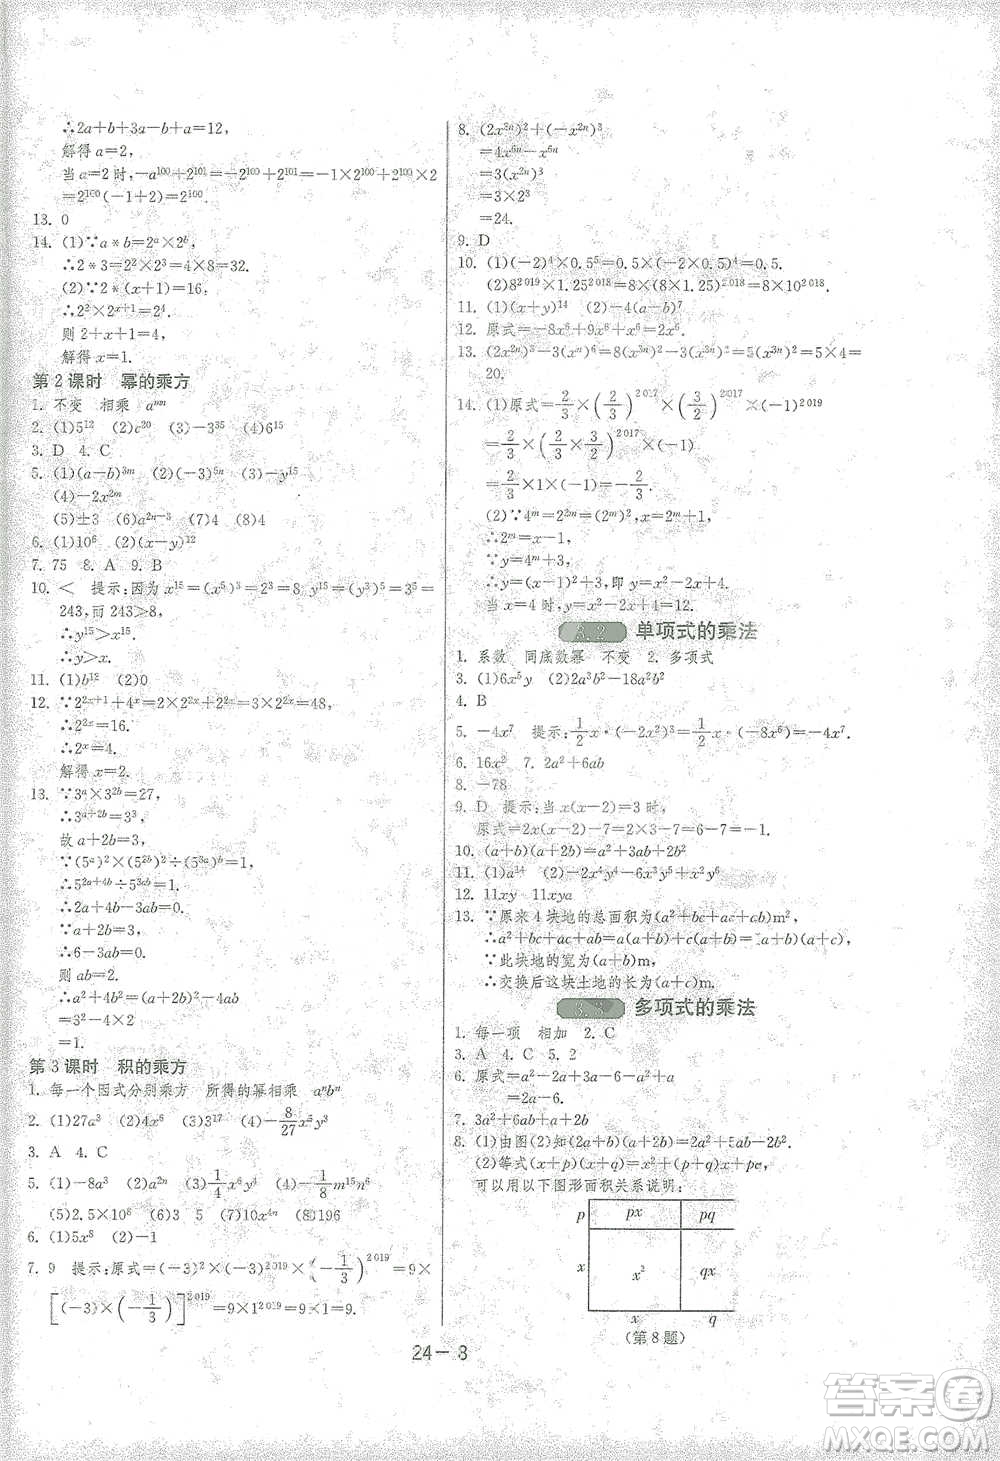 ∴2a+b+3a-b+a=12,
解得 a=2,
当 a=2 时,-a¹⁰⁰+2¹⁰¹=-2¹⁰⁰+2¹⁰¹=-1×2¹⁰⁰+2¹⁰⁰×2
=2¹⁰⁰(-1+2)=2¹⁰⁰.
13. 0
14. (1)∵a*b=2ᵃ×2ᵇ,
∴2*3=2²×2³=4×8=32.
(2)∵2*(x+1)=16,
∴2²×2ˣ⁺¹=2⁴.
则 2+x+1=4,
解得 x=1.
第 2 课时 幂的乘方
1. 不变 相乘 aᵐⁿ
2. (1)5¹² (2)c²⁰ (3)-3³⁵ (4)6¹⁵
3. D 4. C
5. (1)(a-b)³ᵐ (2)(-3)⁵ⁿ (3)-y¹⁵
(4)-2x²ᵐ
(5)±3 (6)a²ⁿ⁻³ (7)4 (8)4
6. (1)10⁶ (2)(x-y)¹⁵
7. 75 8. A 9. B
10. < 提示:因为 x¹⁵=(x⁵)³=2³=8,y¹⁵=(y³)⁵=3⁵=
243,而 243>8,
∴y¹⁵>x¹⁵.
∴y>x.
11. (1)b¹² (2)0
12. ∵2²ˣ⁺¹+4ˣ=2×2²ˣ+2²ˣ=3×2²ˣ=48,
∴2²ˣ=16.
∴2ˣ=4.
解得 x=2.
13. ∵3ᵃ×3²ᵇ=27,
∴3ᵃ⁺²ᵇ=3³,
故 a+2b=3.
∵(5ᵃ)²×(5²ᵇ)²÷(5³ᵃ)ᵇ=1,
∴5²ᵃ⁺⁴ᵇ÷5³ᵃᵇ=1.
∴2a+4b-3ab=0.
∵a+2b=3,
∴6-3ab=0.
则 ab=2.
∴a²+4b²=(a+2b)²-4ab
=3²-4×2
=1.
第 3 课时 积的乘方
1. 每一个因式分别乘方 所得的幂相乘 aⁿbⁿ
2. (1)27a³ (2)4x⁶ (3)3¹⁷ (4)-8/27x⁵y³
3. A 4. C
5. (1)-8a³ (2)a²ⁿ (3)1/4x⁶y⁴ (4)-1/8m¹⁵n
(5)2.5×10⁸ (6)3 5 (7)10x⁴ⁿ (8)196
6. (1)5x⁸ (2)-1
7. 9 提示:原式=(-3)²×(-3)²⁰¹⁹×(-1/3)²⁰¹⁹=9×
[(-3)×(-1/3)]²⁰¹⁹=9×1²⁰¹⁹=9×1=9.
8. (2x²ⁿ)²+(-x²ⁿ)³
=4x⁶ⁿ-x⁶ⁿ
=3(x²ⁿ)³
=3×2³
=24.
9. D
10. (1)(-2)⁴×0.5⁵=0.5×(-2×0.5)⁴=0.5.
(2)8²⁰¹⁹×1.25²⁰¹⁸=8×(8×1.25)²⁰¹⁸=8×10²⁰¹⁸.
11. (1)(x+y)¹⁴ (2)-4(a-b)⁷
12. 原式=-8x⁶+9x⁶+x⁶=2x⁶.
14. (1)原式=2/3×(2/3)²⁰¹⁷×(3/2)²⁰¹⁷×(-1)²⁰¹⁹
=2/3×(2/3×3/2)²⁰¹⁷×(-1)
=2/3×1×(-1)=-2/3.
(2)∵4ᵐ=2²ᵐ=(2ᵐ)²,x=2ᵐ+1,
∴2ᵐ=x-1.
∵y=4ᵐ+3,
∴y=(x-1)²+3,即 y=x²-2x+4.
当 x=4 时,y=4²-2×4+4=12.
3.2 单项式的乘法
1. 系数 同底数幂 不变 2. 多项式
3. (1)6x⁵y (2)2a³b²-18a²b²
4. B
5. -4x⁷ 提示:1/2x·(-2x²)³=1/2x·(-8x⁶)=-4x⁷.
6. 16x² 7. 2a²+6ab
8. -78
9. D 提示:当 x(x-2)=3 时,
原式=2x(x-2)-7=2×3-7=6-7=-1.
10. (a+b)(a+2b)=a²+3ab+2b²
12. 11xy 11xya
13. ∵原来 4 块地的总面积为(a²+bc+ac+ab)m²,
∴a²+bc+ac+ab=a(a+b)+c(a+b)=(a+c)(a+b).
∵此块地的宽为(a+b)m,
∴交换后这块土地的长为(a+c)m.
3.3 多项式的乘法
1. 每一项 相加 2. C
3. A 4. C 5. 2
6. 原式=a²-2a-3-a²+4a-3
=2a-6.
7. 3a²+6ab+a+2b
8. (1)由图(2)知(2a+b)(a+2b)=2a²+5ab+2b².
(2)等式(x+p)(x+q)=x²+px+qx+pq,
可以用以下图形面积关系说明:
p px pq
x x² qx
x q
(第 8 题)
24-3
答案圈
MXQE.COM